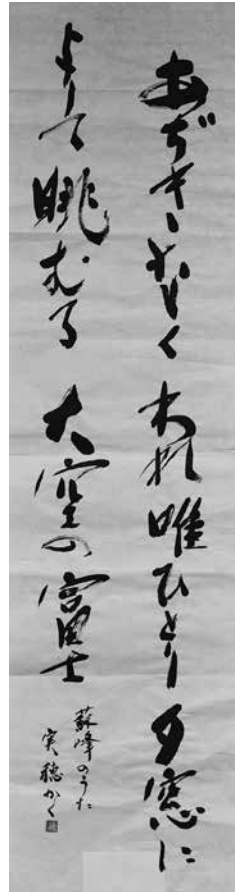 あぢきなくわれ唯ひとり夕窓に
よりて眺むる大空の富士
蘇峰のうた
実穂かく